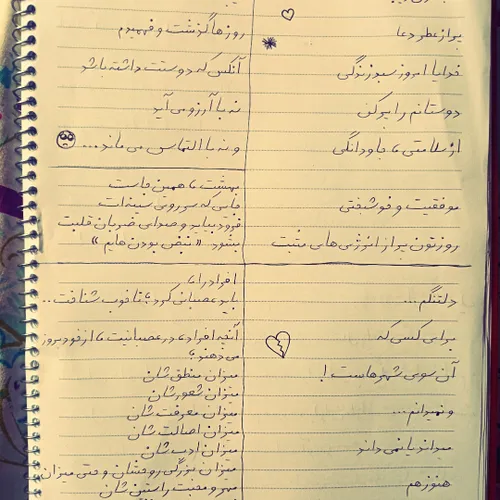 پر از عطر دعا
خدایا امروز سبد زندگی
دوستانم را پر کن
از سلامتی، جاودانگی
موفقیت و خوشبختی
روزتون پر از انرژی های مثبت
دلتنگم...
برای کسی که
آن سوی شهرهاست!
و نمیدانم...
میداند یا نمی داند
هنوز هم
روزها گذشت و فهمیدم
آنکس که دوستت داشته باشد
نه با آرزو می آید
و نه با التماس می ماند...
بهشت، همین جاست
جایی که سر روی سینه ات
فرود بیاید و صدای ضربان قلبت
بشود "نبض بودن هایم"
افراد را،
باید عصبانی کرد؛ تا خوب شناخت..
آنچه افراد، در عصبانیت، از خود بروز
می دهند؛
میزان منطق شان
میزان شعورشان
میزان معرفت شان
میزان اصالت شان
میزان ادب شان
میزان بزرگی روحشان و حتی میزان
مهر و محبت راستین شان